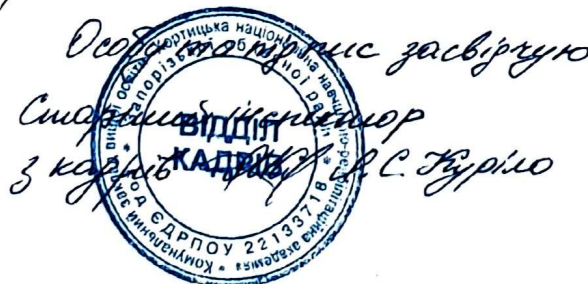 Особистий підпис засвідчую
Старший інспектор
з кадрів А.С. Куріло
Комунальний заклад вищої освіти «Хортицька національна навчально-реабілітаційна академія»
Запорізької обласної ради
код ЄДРПОУ 22133718
ВІДДІЛ
КАДРІВ